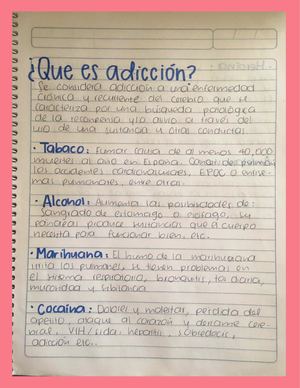 ¿Que es adicción?
Se considera adicción a una enfermedad
crónica y recurrente del cerebro que se
caracteriza por una búsqueda patológica
de la recompensa y/o alivio a través del
uso de una sustancia u otras conductas
· Tabaco: Fumar causa de al menos 40,000
muertes al año en España. Cancer de pulmón
los accidentes cardiovasculares, EPOC o enfermedades
pulmonares, entre otras.
· Alcohol: Aumenta las posibilidades de:
Sangrado de estomago o esofago, su
páncreas produce sustancias que el cuerpo
necesita para funcionar bien, etc.
· Marihuana: El humo de la marihuana
irrita los pulmones, se tienen problemas en
el sistema respiratorio, bronquitis, tos diaria,
mucosidad y sibilancia
· Cocaína: Dolores y malestar, perdida del
apetito, ataque al corazón y derrame cere-
bral, VIH/sida, hepatitis, sobredosis,
adicción etc..